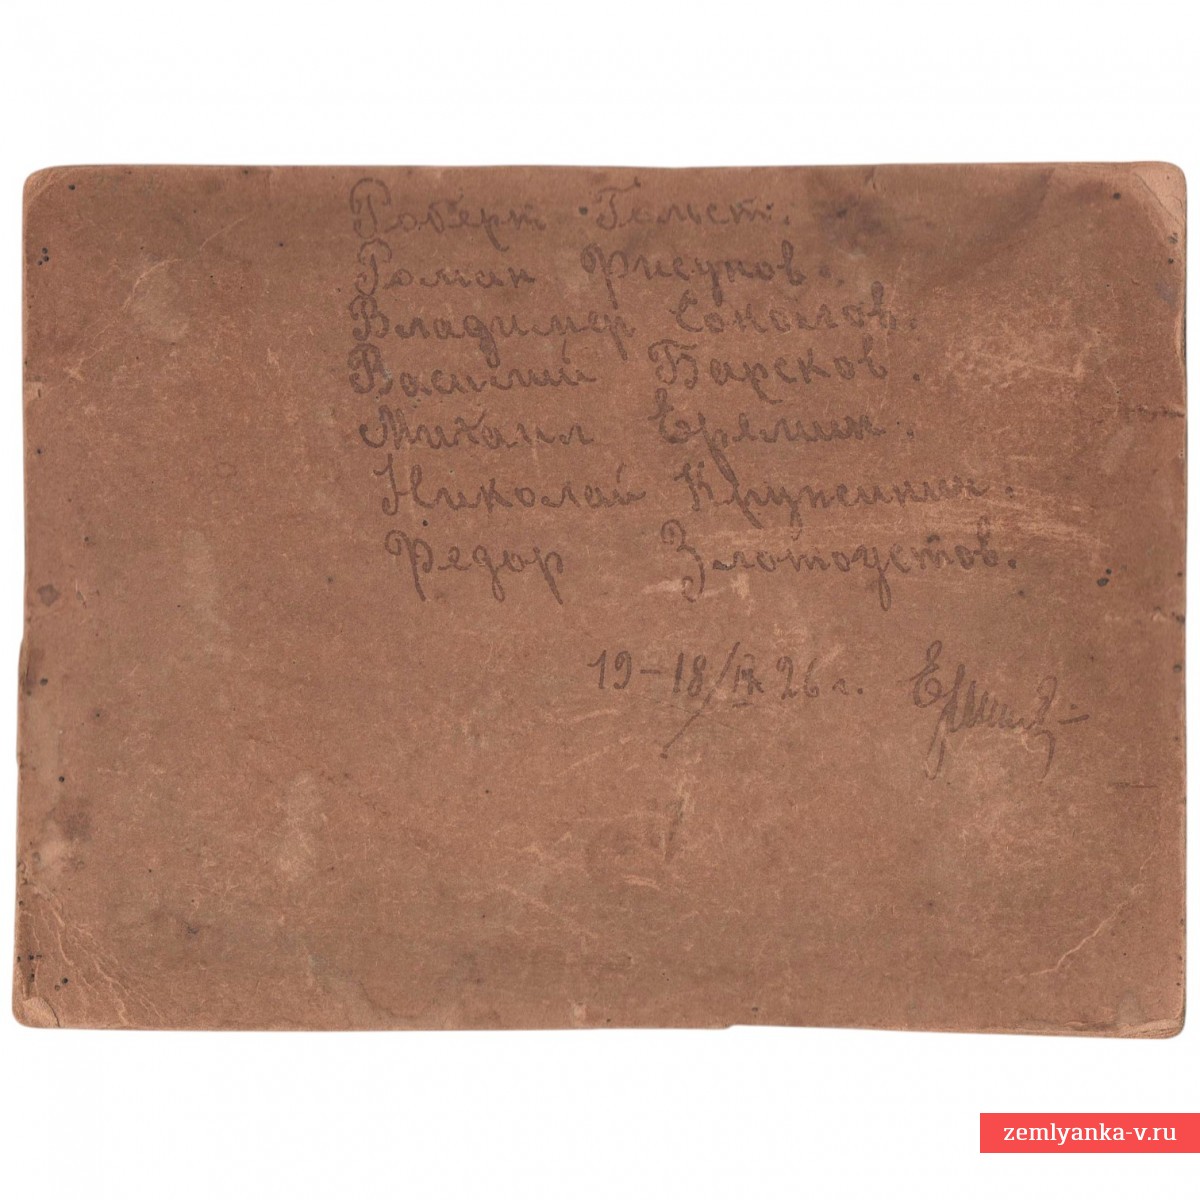 Роберт Гольст.
Роман Рисунов.
Владимер Соколов.
Василий Барсков.
Михаил Ерялин.
Николай Кружинин.
Федор Златоустов.
19-18/IX 26 г.
zemlyanka-v.ru